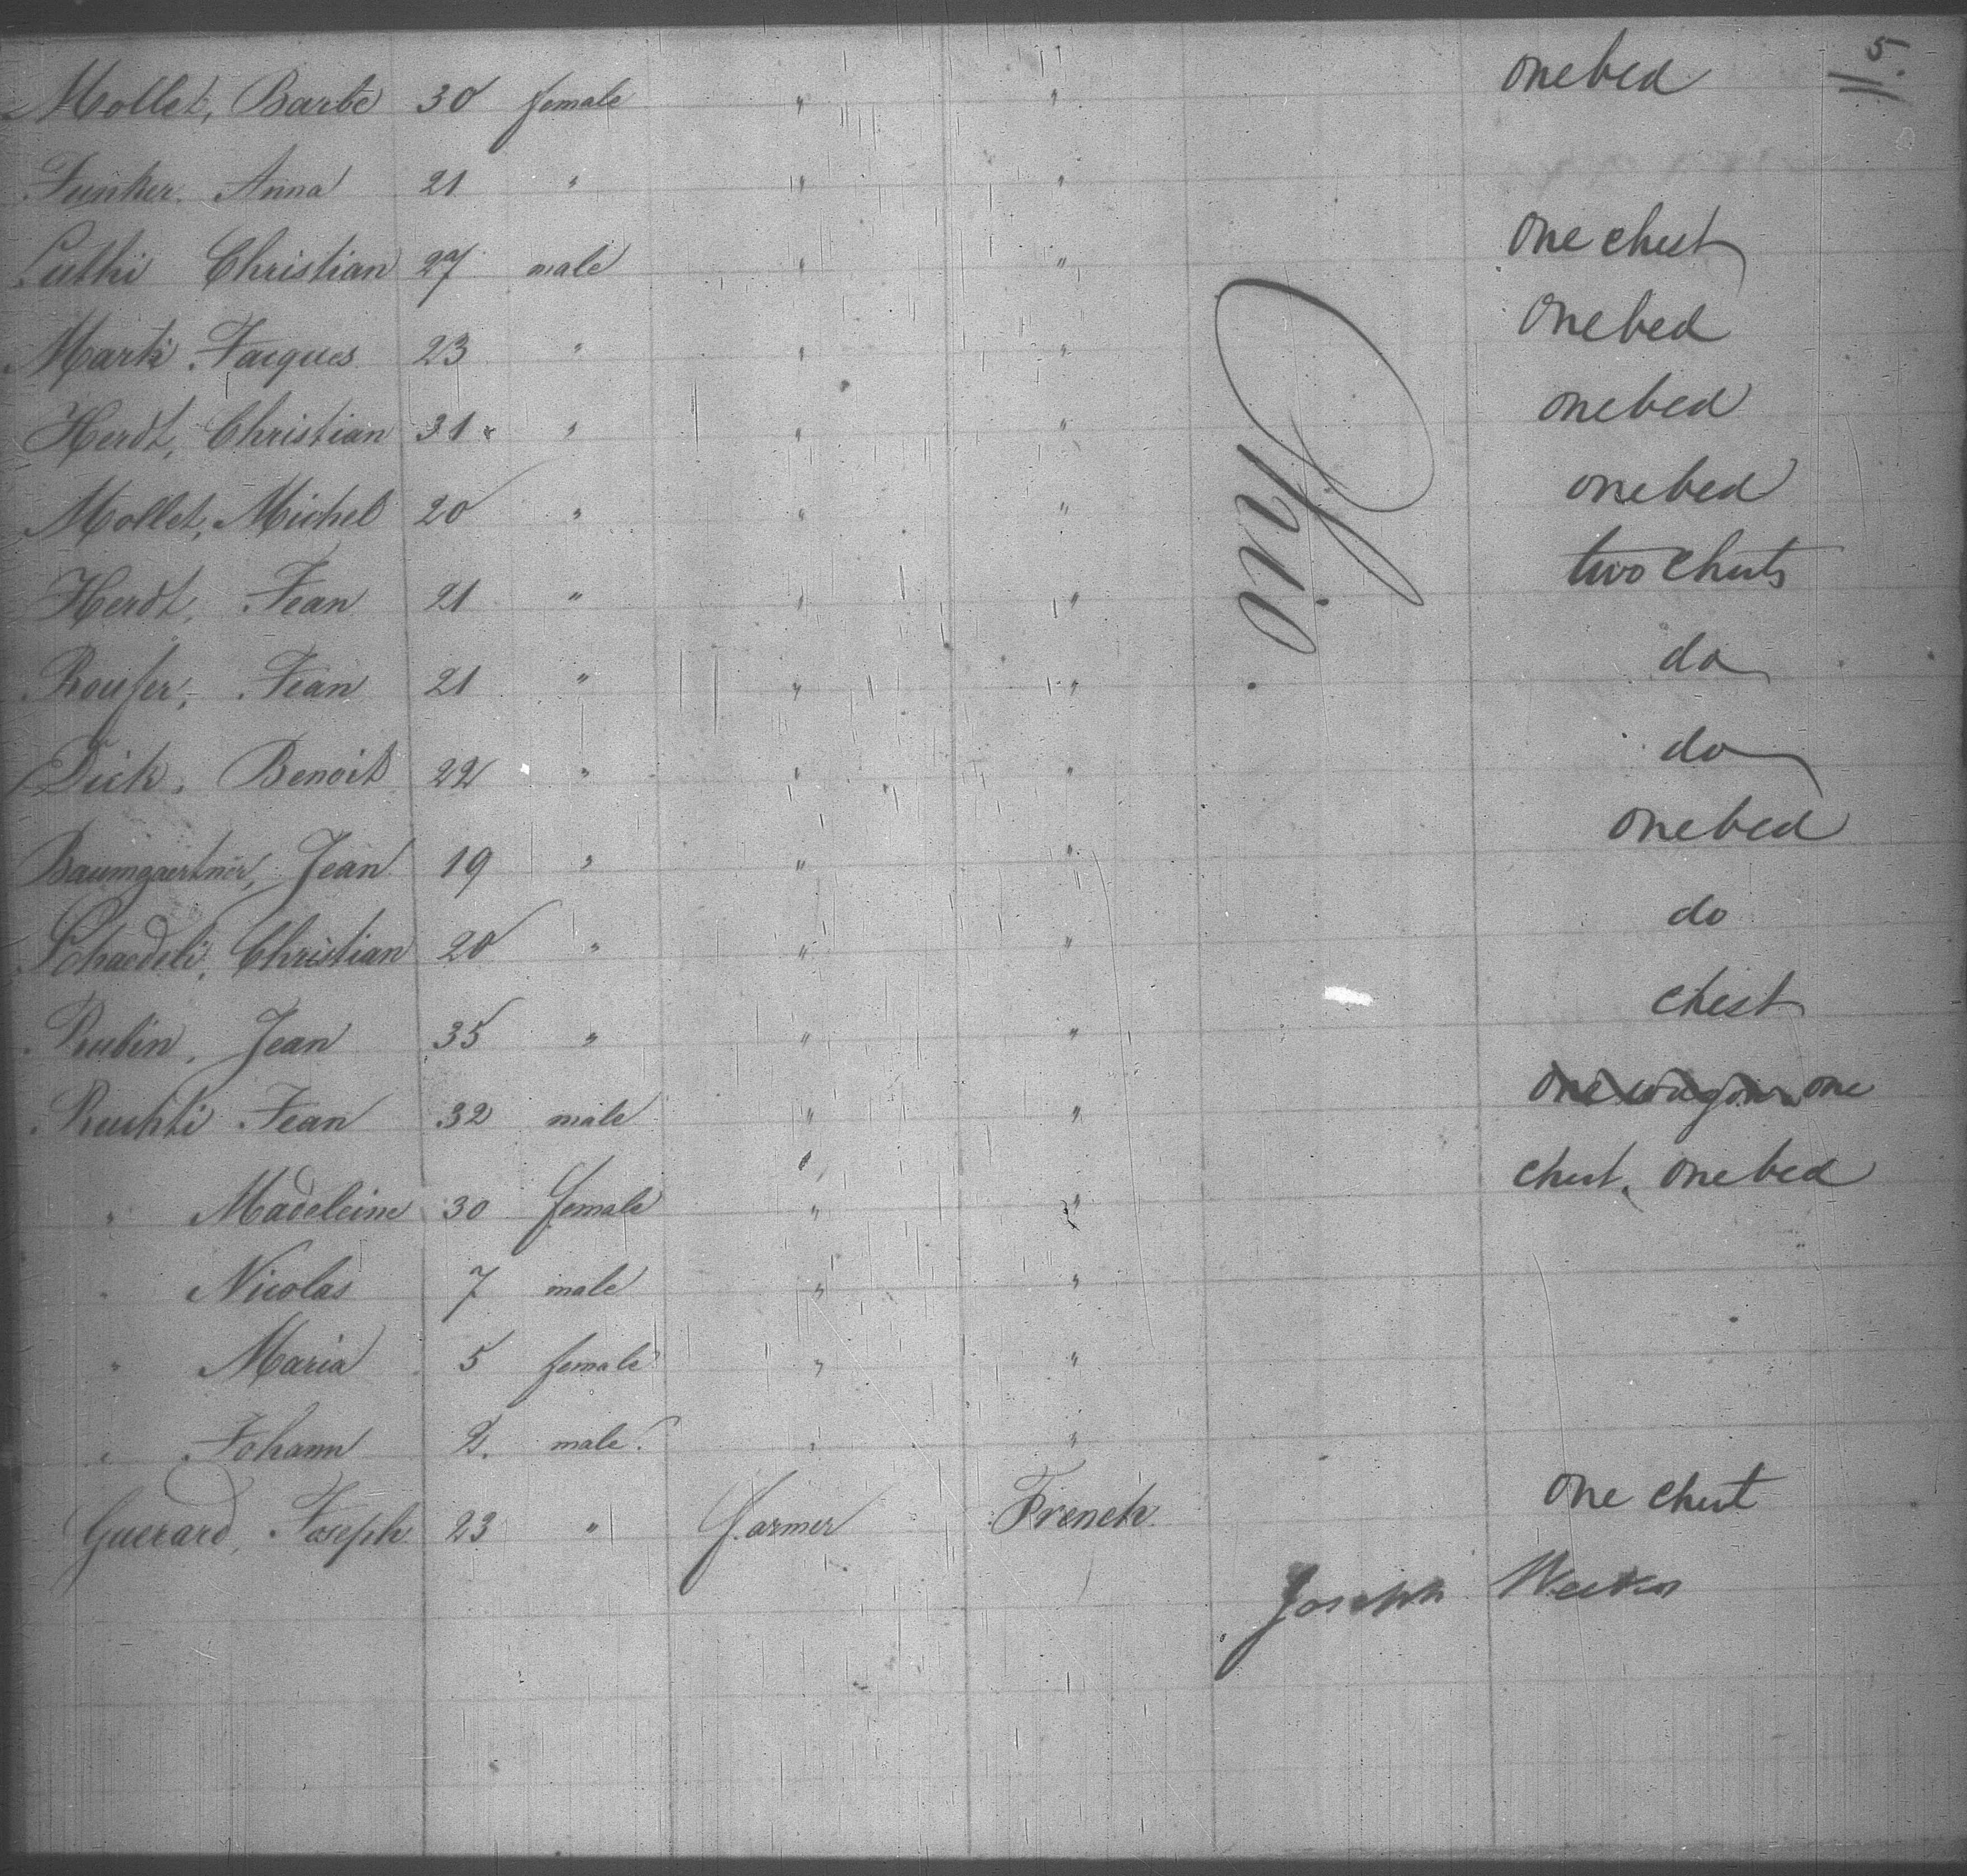 5.
Mollet, Barbe 30 female " " one bed
Junker, Anna 21 " " "
Luthi Christian 27 male " " one chest
Marti Jacques 23 " " " one bed
Herdt, Christian 31 " " " one bed
Mollet, Michel 20 " " " one bed
Herdt, Jean 21 " " " two chests
Roufer, Jean 21 " " " do
Dick, Benoit 22 " " " do
Baumgaertner, Jean 19 " " " one bed
Schaedeli, Christian 20 " " " do
Rubin, Jean 35 " " " chest
Ohio
Ruchti Jean 32 male " " one wagon one
" Madeleine 30 female " " chest, one bed
" Nicolas 7 male " "
" Maria 5 female " "
" Johann 2. male. " "
Guerard, Joseph 23 " Farmer French one chest
Joseph